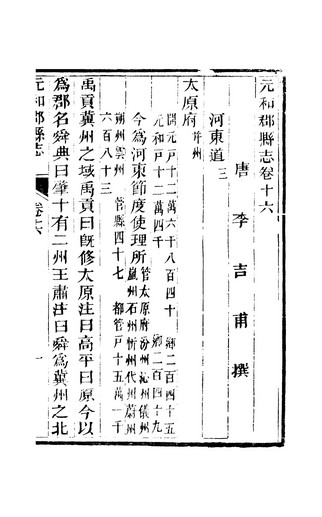 元和郡縣志卷十六
唐李吉甫撰
河東道三
太原府并州
開元戸十二萬六千八百四十 鄉二百四十五
元和戸十二萬四千 鄉二百四十九
今為河東節度使理所管太原府汾州沁州儀州
嵐州石州忻州代州蔚州
朔州雲州 管縣四十七 都管戸十五萬一千
六百八十三
禹貢冀州之域禹貢曰既修太原注曰高平曰原今以
為郡名舜典曰肇十有二州王肅注曰舜為冀州之北
元和郡縣志
卷十六
一